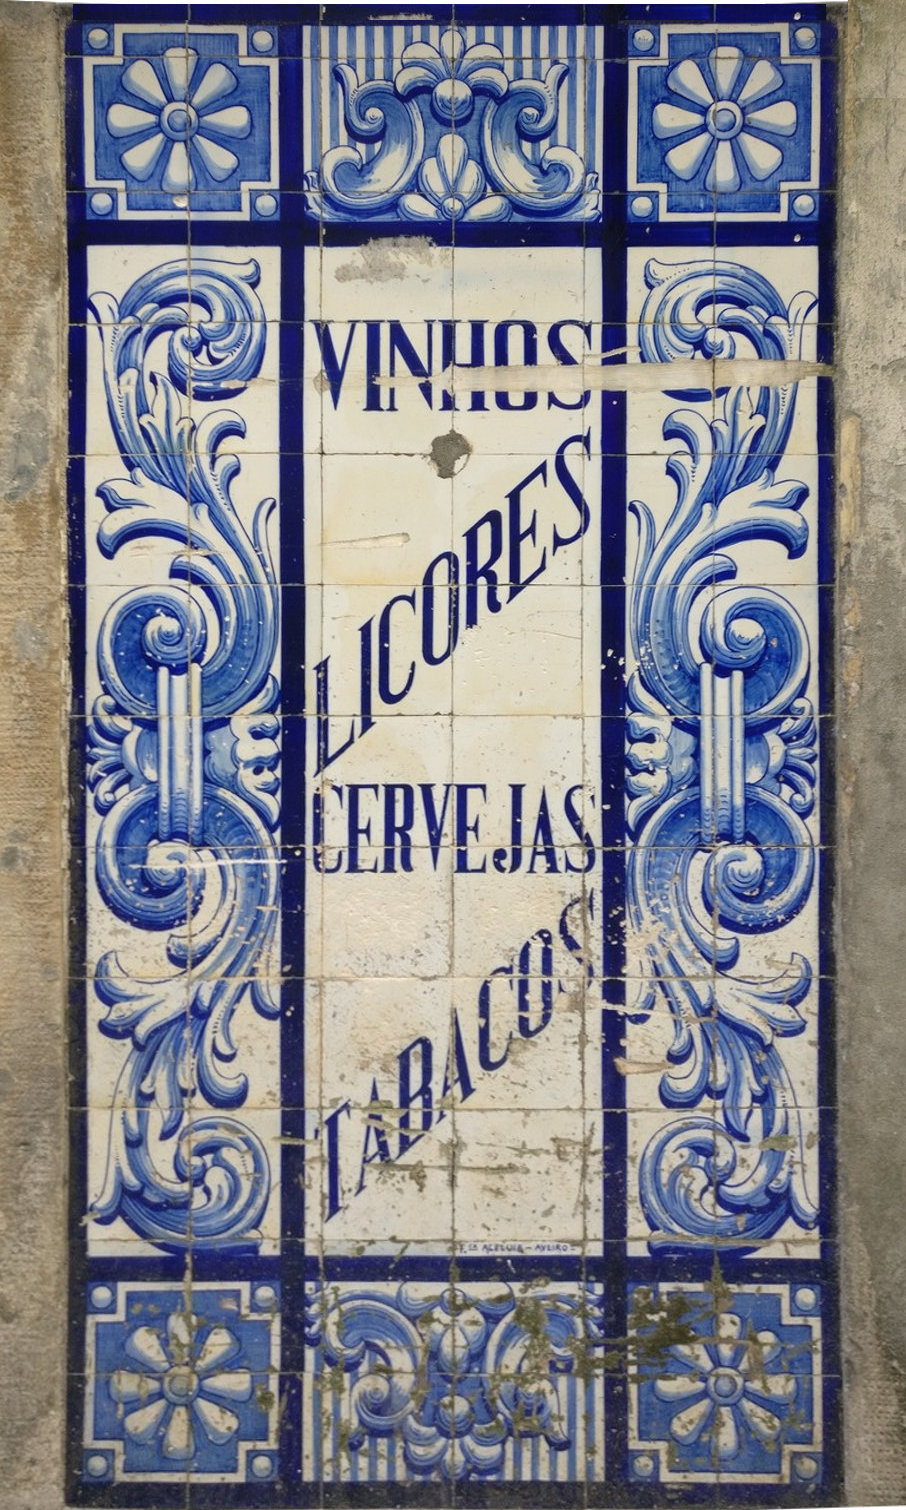 VINHOS
LICORES
CERVEJAS
TABACOS
F. CA ALELUIA – AVEIRO –